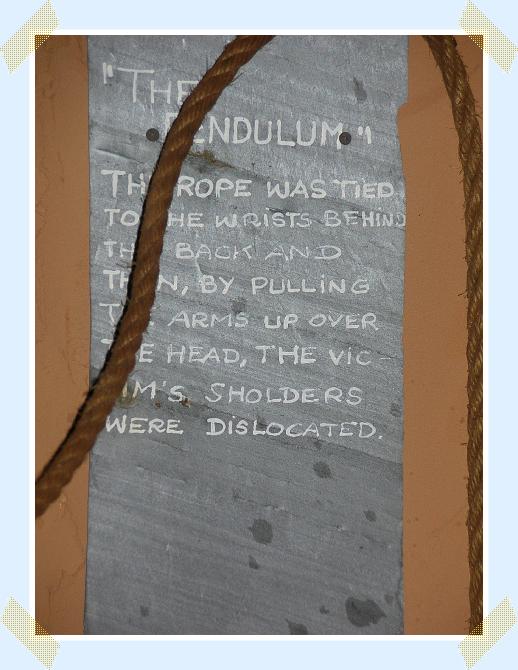 "THE
PENDULUM"
THE ROPE WAS TIED
TO THE WRISTS BEHIND
THE BACK AND
THEN, BY PULLING
THE ARMS UP OVER
THE HEAD, THE VIC-
TIM'S SHOLDERS
WERE DISLOCATED.